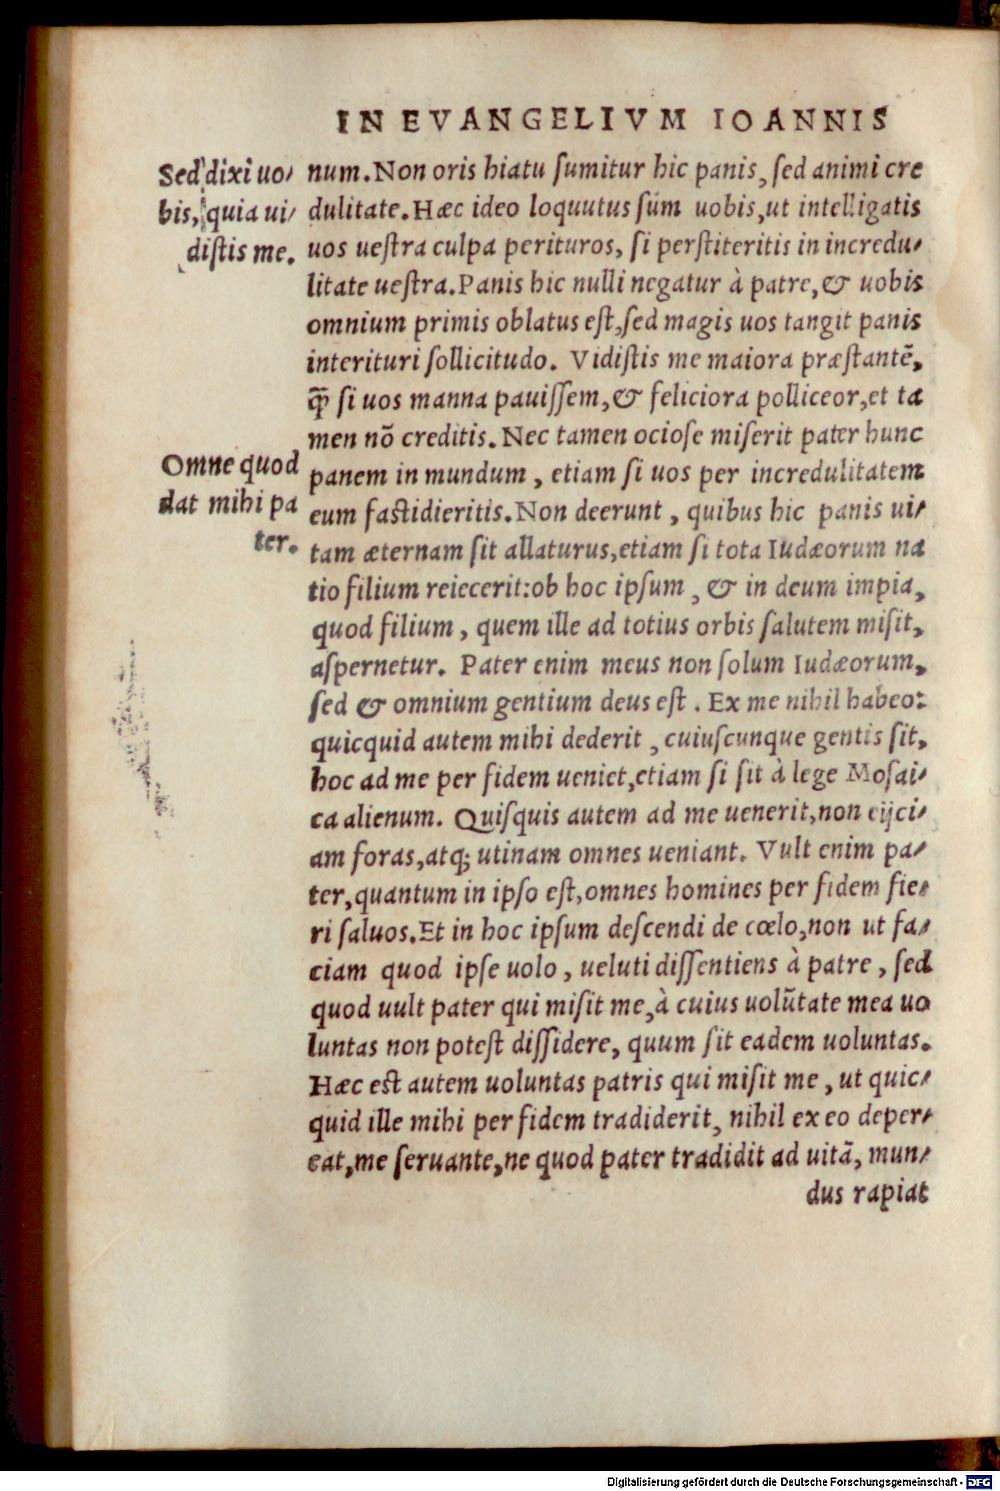 IN EVANGELIVM IOANNIS
Sed dixi uo⸗
bis, quia ui⸗
distis me.
num. Non oris hiatu sumitur hic panis, sed animi cre
dulitate. Hæc ideo loquutus sũm uobis, ut intelligatis
uos uestra culpa perituros, si perstiteritis in incredu⸗
litate uestra. Panis hic nulli negatur à patre, & uobis
omnium primis oblatus est, sed magis uos tangit panis
interituri sollicitudo. Vidistis me maiora præstantẽ,
q̃ꝑ si uos manna pauissem, & feliciora polliceor, et ta
men nõ creditis. Nec tamen ociose miserit pater hunc
Omne quod
dat mihi pa
ter.
panem in mundum, etiam si uos per incredulitatem
eum fastidieritis. Non deerunt, quibus hic panis ui⸗
tam æternam sit allaturus, etiam si tota Iudæorum na
tio filium reiecerit: ob hoc ipsum, & in deum impia,
quod filium, quem ille ad totius orbis salutem misit,
aspernetur. Pater enim meus non solum Iudæorum,
sed & omnium gentium deus est. Ex me nihil habeo:
quicquid autem mihi dederit, cuiuscunque gentis sit,
hoc ad me per fidem ueniet, etiam si sit à lege Mosai⸗
ca alienum. Quisquis autem ad me uenerit, non eijci⸗
am foras, atq; utinam omnes ueniant. Vult enim pa⸗
ter, quantum in ipso est, omnes homines per fidem fie⸗
ri saluos. Et in hoc ipsum descendi de cœlo, non ut fa⸗
ciam quod ipse uolo, ueluti dissentiens à patre, sed
quod uult pater qui misit me, à cuius uolũtate mea uo
luntas non potest dissidere, quum sit eadem uoluntas.
Hæc est autem uoluntas patris qui misit me, ut quic⸗
quid ille mihi per fidem tradiderit, nihil ex eo deper⸗
eat, me seruante, ne quod pater tradidit ad uitã, mun⸗
dus rapiat
Digitalisierung gefördert durch die Deutsche Forschungsgemeinschaft - DFG